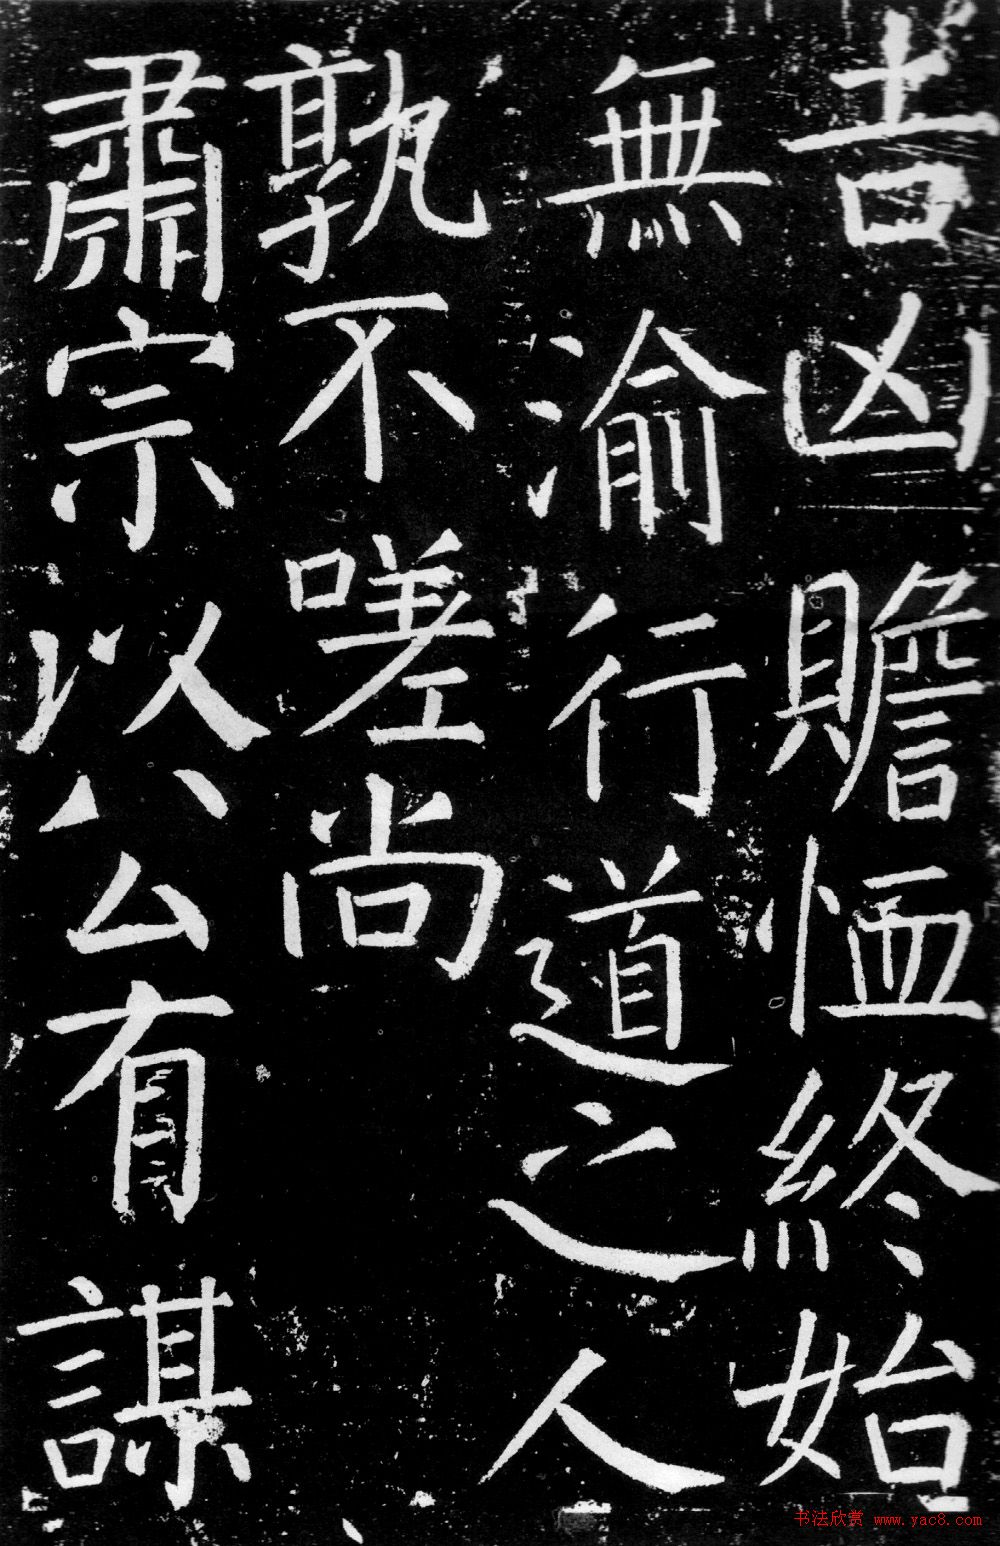 吉凶贍恤終始
無渝行道之人
孰不嗟尚
肅宗以公有謀
书法欣赏 www.yac8.com